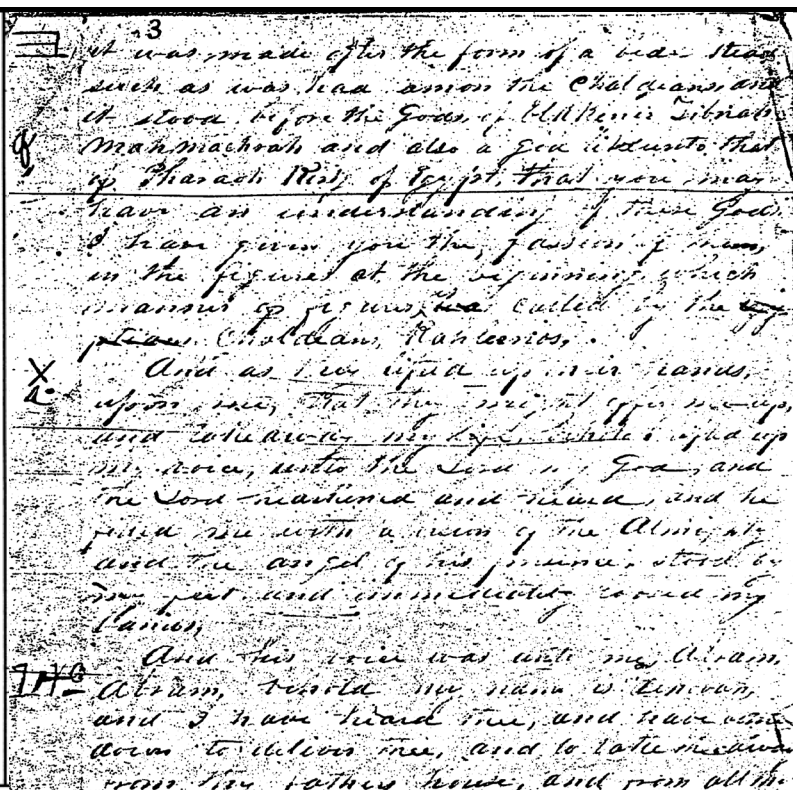 3
it was made after the form of a bedstead
such as was had among the Chaldeans, and
it stood before the Gods of Elkkener Zibnah
Mahmachrah and also a god like unto that
of Pharaoh King of Egypt, that you may
have an understanding of these Gods
I have given you the, fassion of them,
in the figures at the beginning which
manner of figures, is called by the
Chaldeans, Kahleenos.
And as they lifted up their hands,
upon me, that they might offer me up,
and take away my life, behold I lifted up
my voice, unto the Lord my God, and
the Lord hearkened and heard, and he
filled me with a vision of the Almighty
and the angel of his presence stood by
my feet and immediately loosed my
bands,
And his voice was unto me, Abram,
Abram, behold my name is
and I have heard thee, and have come
down to deliver thee, and to take thee away
from thy fathers house, and from all thy